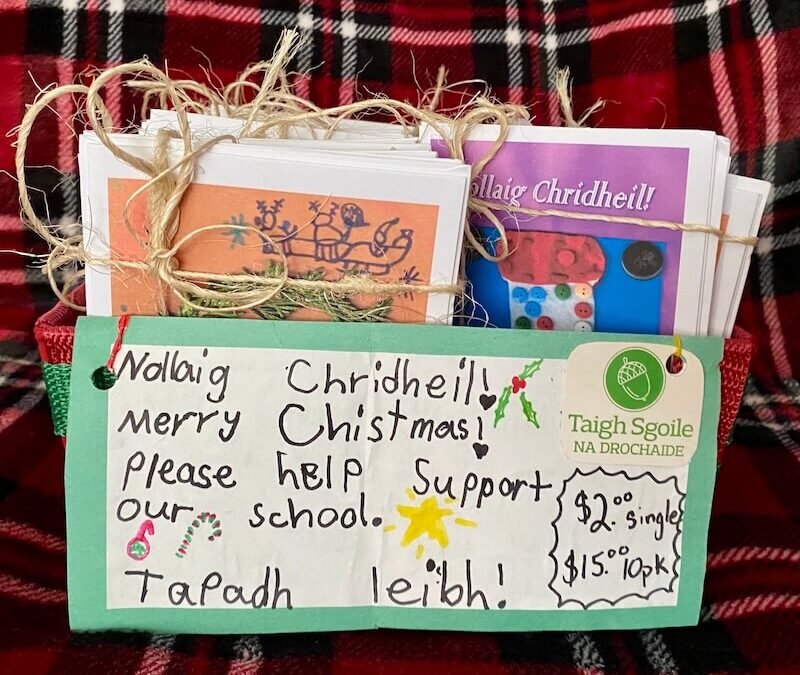 Chridheil!
Nollaig Chridheil!
Merry Chistmas!
Please help Support
our school.
Tapadh leibh!
Taigh Sgoile
NA DROCHAIDE
$2.00 single
$15.00 10pk